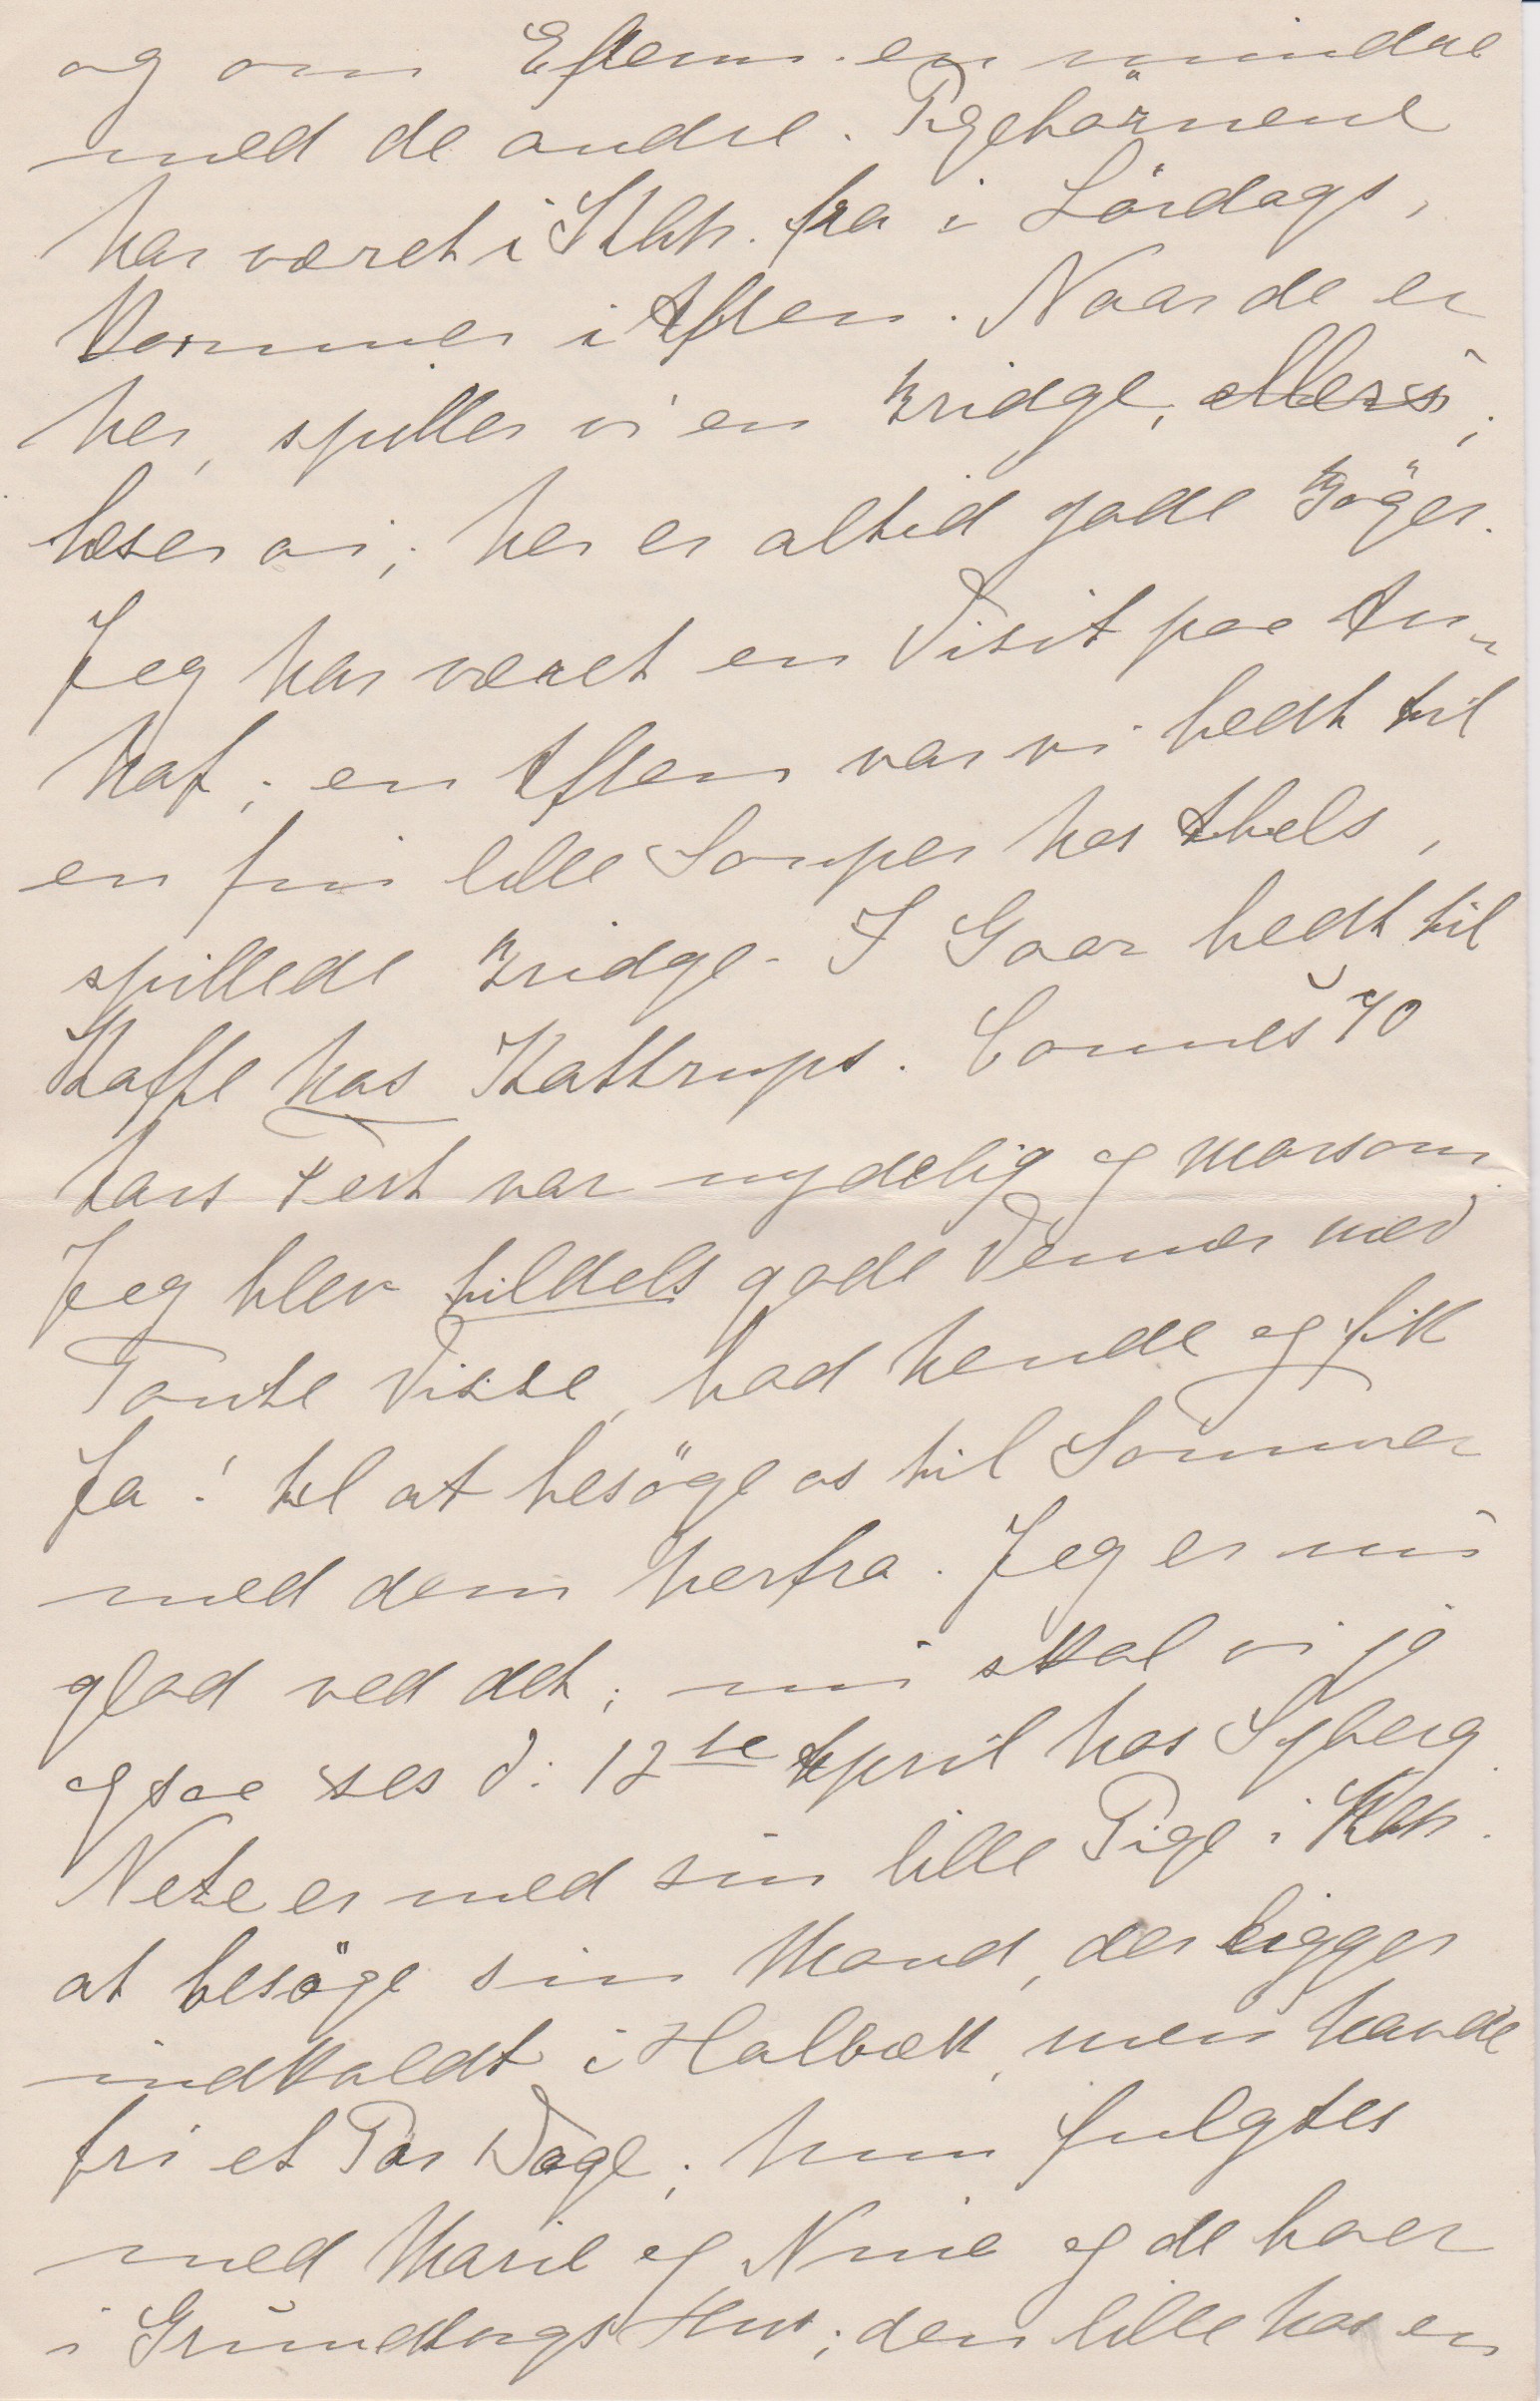 og om Efterm. en mindre
med de andre. Pigebörnene
har været i Kbh. fra i Lördags,
kommer i Aften. Naar de er
her, spiller vi en Bridge, ellers,
læser vi; her er altid gode Böger.
Jeg har været en Visit paa An-
haf; en Aften var vi bedt til
en fin lille Souper hos Abels,
spillede Bridge. I Gaar bedt til
Kaffe hos Kattrups. Connes 70
Aars Fest var nydelig og morsom.
Jeg blev tildels gode Venner med
Tante Visse, bad hende og fik
Ja! til at besöge os til Sommer
med dem herfra. Jeg er nu
glad ved det; nu skal vi jo
ogsaa ses d: 12te April hos Syberg.
Nete er med sin lille Pige i Kbh.
at besöge sin Mand, der ligger
indkaldt i Holbæk, men havde
fri et Par Dage; hun fulgtes
med Marie og Nina og de boer
i Grundtvigs Hus; den lille har en